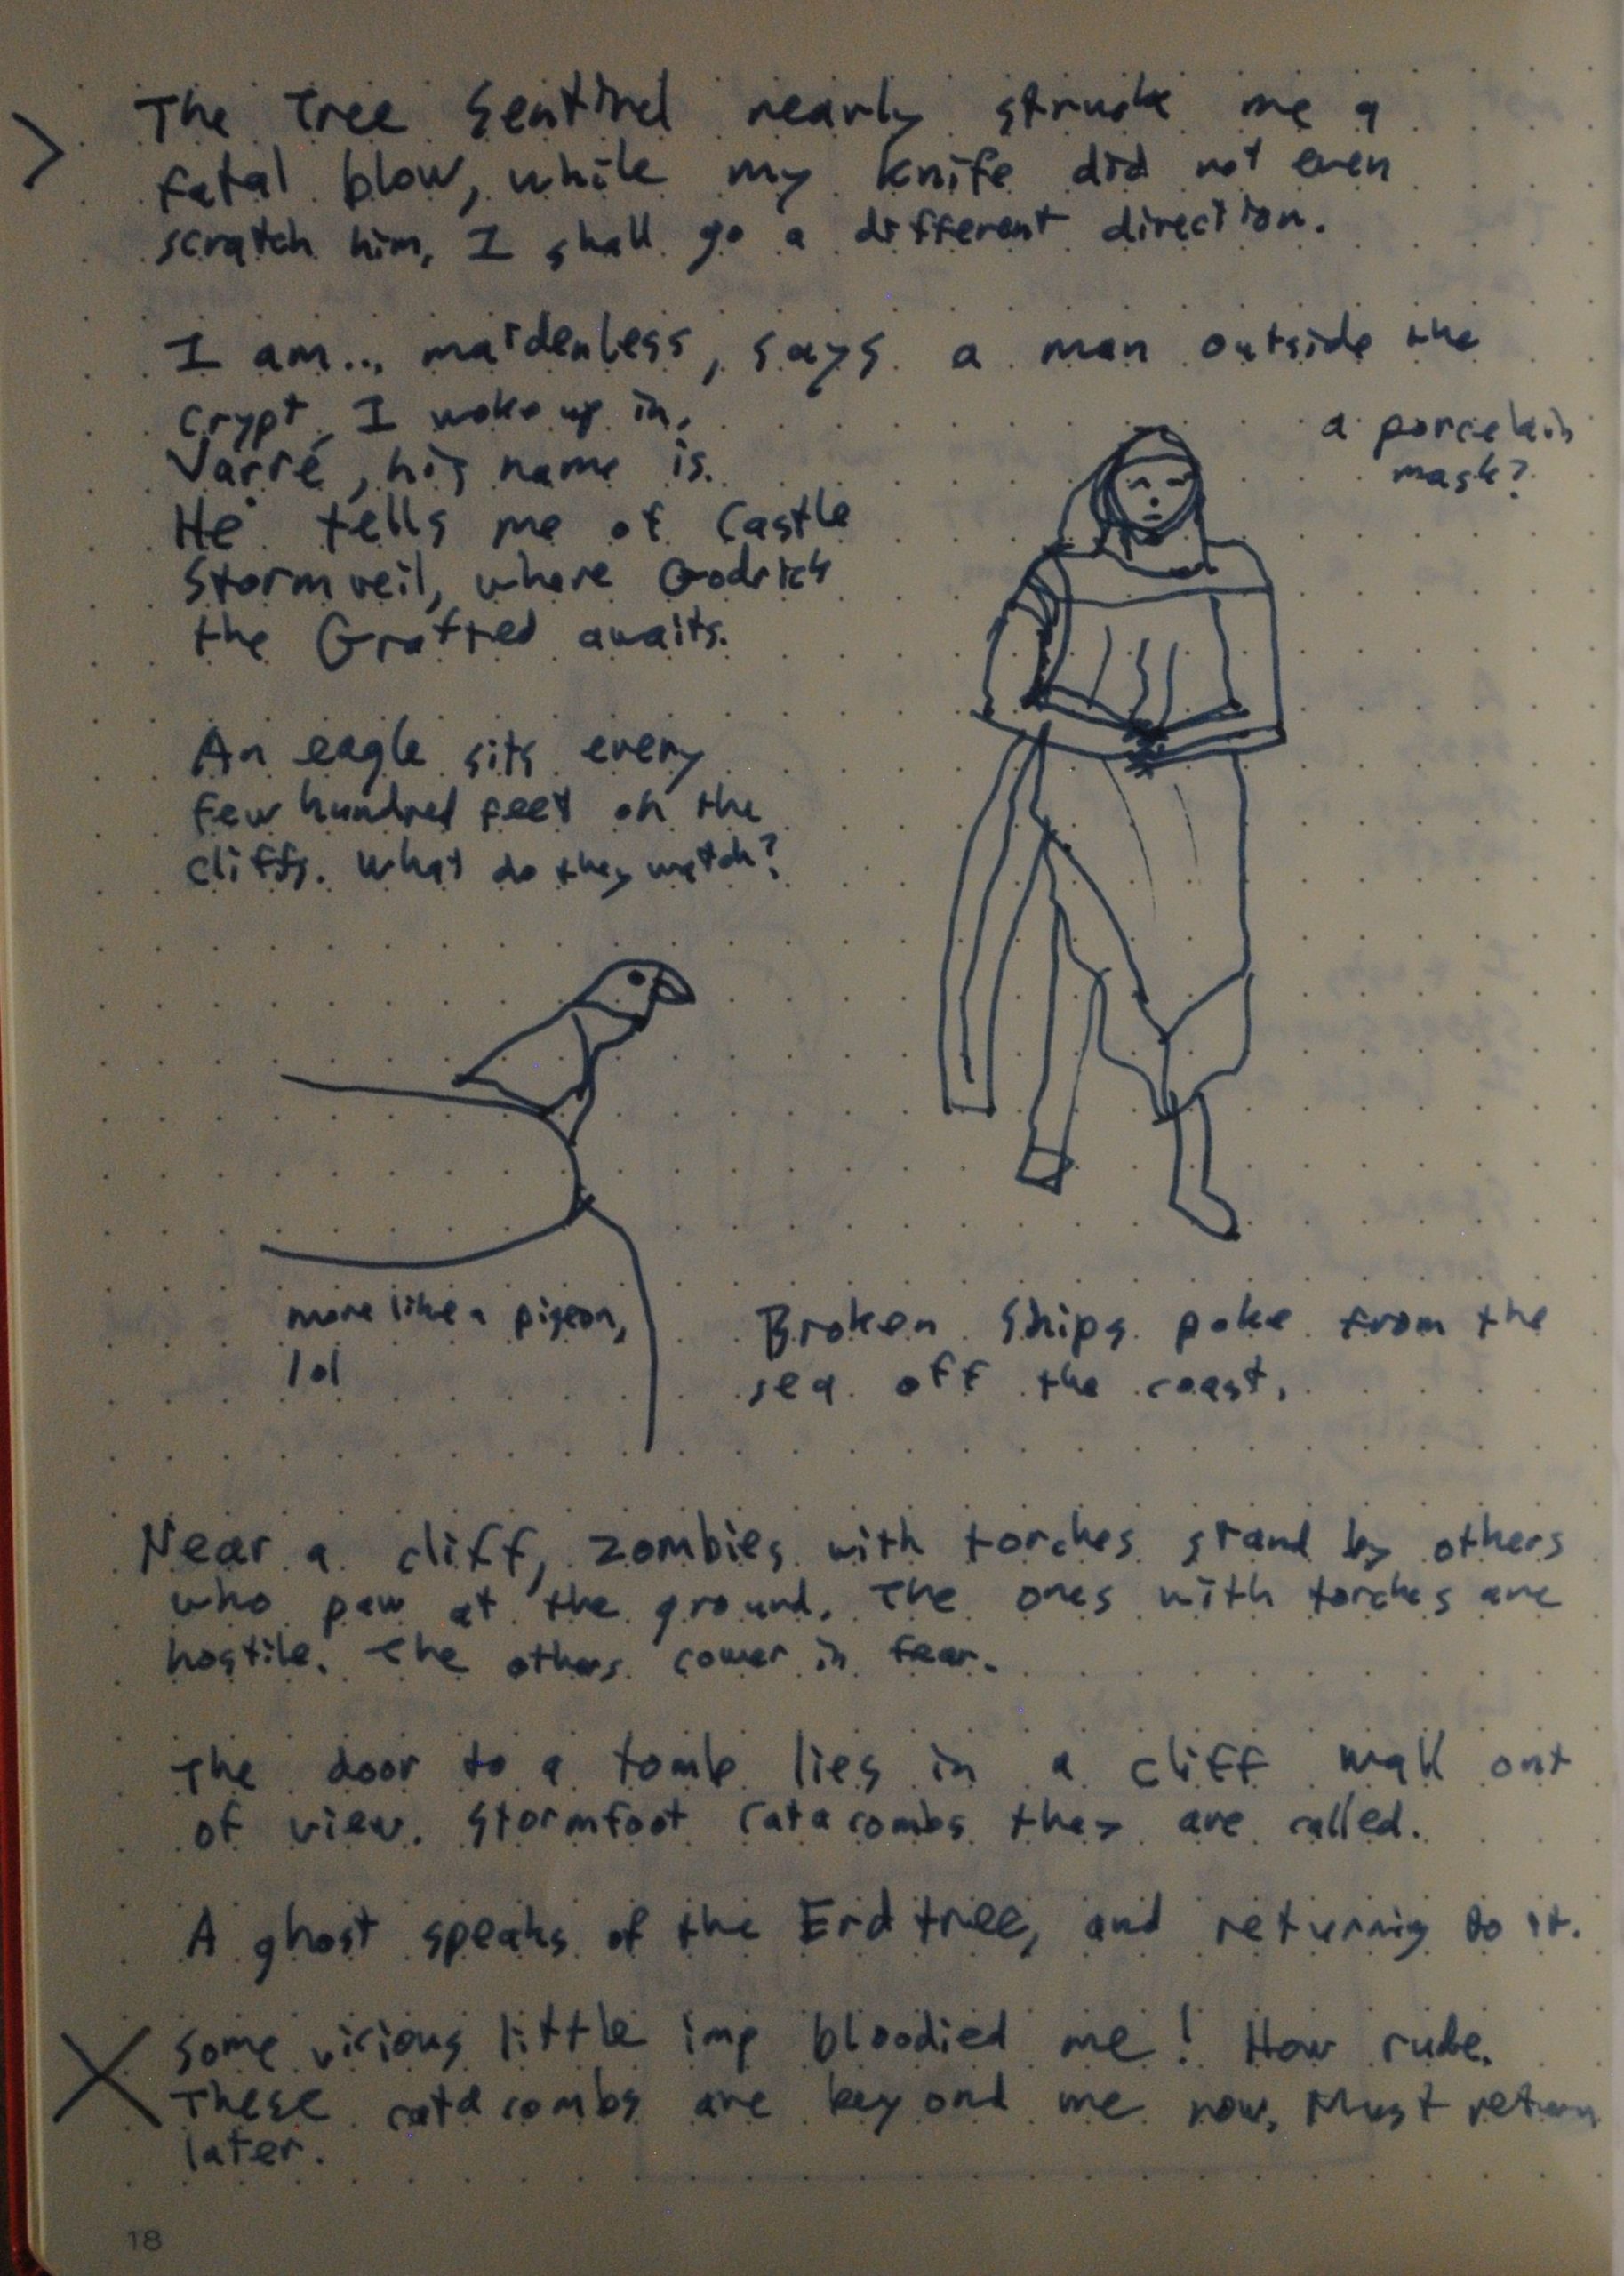 The Tree Sentinel nearly struck me a
fatal blow, while my knife did not even
scratch him, I shall go a different direction.
I am... maidenless, says a man outside the
crypt I woke up in.
Varré, his name is.
He tells me of Castle
Stormveil, where Godrick
the Grafted awaits.
a porcelain
mask?
An eagle sits every
few hundred feet on the
cliffs. What do they watch?
more like a pigeon,
lol
Broken ships poke from the
sea off the coast.
Near a cliff, zombies with torches stand by others
who paw at the ground. The ones with torches are
hostile. The others cower in fear.
The door to a tomb lies in a cliff wall out
of view. Stormfoot Catacombs they are called.
A ghost speaks of the Erdtree, and returnig to it.
Some vicious little imp bloodied me! How rude.
These catacombs are beyond me now. Must return
later.
18